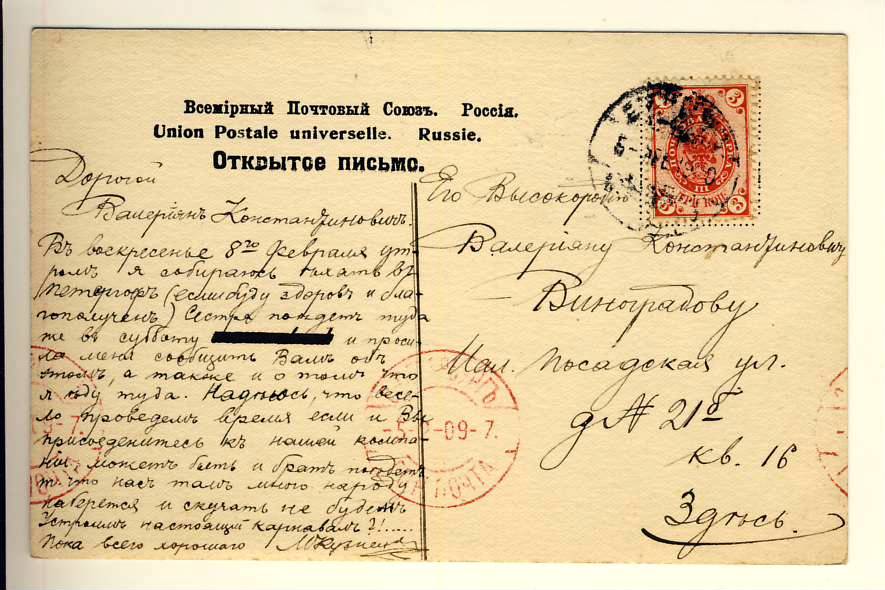 Всемірный Почтовый Союзъ. Россія.
Union Postale universelle. Russie.
Открытое письмо.
Дорогой
Валеріянъ Константиновичъ.
Въ воскресенье 8го февраля ут-
ромъ я собираюсь ѣхать въ
Петергофъ (если буду здоровъ и бла-
гополученъ) Сестра поѣдетъ туда
же въ субботу и проси-
ла меня сообщить Вамъ объ
этомъ, а также и о томъ что
я ѣду туда. Надѣюсь, что весе-
ло проведемъ время если и Вы
присоединитесь къ нашей компа-
ніи можетъ быть и братъ поѣдетъ
т что насъ тамъ много народу
наберется и скучать не будемъ
Устроимъ настоящій карнавалъ?!......
Пока всего хорошаго
Его Высокородію
Валеріяну Константиновичу
Виноградову
Мал. Посадская ул.
д № 21
кв. 16
Здѣсь.
3 3
3 3
2-09-7.
ПОЧТА